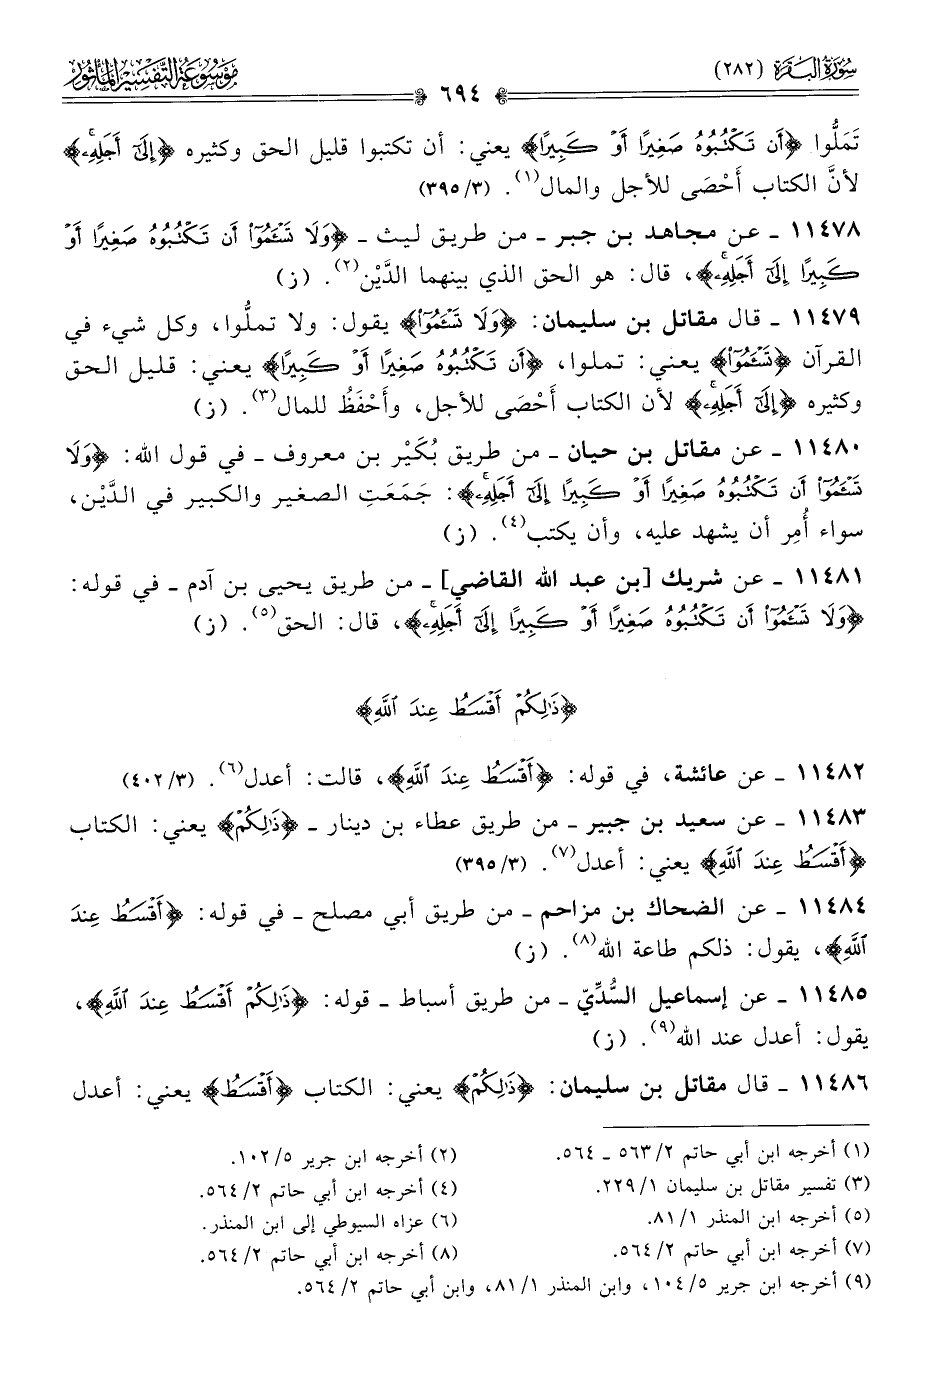 سُورَةُ البَقَرَة (٢٨٢)
٦٩٤
مَوْسُوعَة التَّفْسِير المَأْثُور
تَمَلُّوا ﴿أَن تَكْتُبُوهُ صَغِيرًا أَوْ كَبِيرًا﴾ يعني: أن تكتبوا قليل الحق وكثيره ﴿إِلَىٰٓ أَجَلِهِۦۚ﴾
لأنَّ الكتاب أَحْصَى للأجل والمال(١). (٣/ ٣٩٥)
١١٤٧٨ ـ عن مجاهد بن جبر ـ من طريق ليث ـ ﴿وَلَا تَسْـَٔمُوٓا۟ أَن تَكْتُبُوهُ صَغِيرًا أَوْ
كَبِيرًا إِلَىٰٓ أَجَلِهِۦۚ﴾، قال: هو الحق الذي بينهما الدَّيْن(٢). (ز)
١١٤٧٩ ـ قال مقاتل بن سليمان: ﴿وَلَا تَسْـَٔمُوٓا۟﴾ يقول: ولا تملُّوا، وكل شيء في
القرآن ﴿تَسْـَٔمُوٓا۟﴾ يعني: تملوا، ﴿أَن تَكْتُبُوهُ صَغِيرًا أَوْ كَبِيرًا﴾ يعني: قليل الحق
وكثيره ﴿إِلَىٰٓ أَجَلِهِۦۚ﴾ لأن الكتاب أَحْصَى للأجل، وأَحْفَظُ للمال(٣). (ز)
١١٤٨٠ ـ عن مقاتل بن حيان ـ من طريق بُكَيْر بن معروف ـ في قول الله: ﴿وَلَا
تَسْـَٔمُوٓا۟ أَن تَكْتُبُوهُ صَغِيرًا أَوْ كَبِيرًا إِلَىٰٓ أَجَلِهِۦۚ﴾: جَمَعَتِ الصغير والكبير في الدَّيْن،
سواء أُمِر أن يشهد عليه، وأن يكتب(٤). (ز)
١١٤٨١ ـ عن شريك [بن عبد الله القاضي] ـ من طريق يحيى بن آدم ـ في قوله:
﴿وَلَا تَسْـَٔمُوٓا۟ أَن تَكْتُبُوهُ صَغِيرًا أَوْ كَبِيرًا إِلَىٰٓ أَجَلِهِۦۚ﴾، قال: الحق(٥). (ز)
﴿ذَٰلِكُمْ أَقْسَطُ عِندَ ٱللَّهِ﴾
١١٤٨٢ ـ عن عائشة، في قوله: ﴿أَقْسَطُ عِندَ ٱللَّهِ﴾، قالت: أعدل(٦). (٣/ ٤٠٢)
١١٤٨٣ ـ عن سعيد بن جبير ـ من طريق عطاء بن دينار ـ ﴿ذَٰلِكُمْ﴾ يعني: الكتاب
﴿أَقْسَطُ عِندَ ٱللَّهِ﴾ يعني: أعدل(٧). (٣/ ٣٩٥)
١١٤٨٤ ـ عن الضحاك بن مزاحم ـ من طريق أبي مصلح ـ في قوله: ﴿أَقْسَطُ عِندَ
ٱللَّهِ﴾، يقول: ذلكم طاعة الله(٨). (ز)
١١٤٨٥ ـ عن إسماعيل السُّدِّيّ ـ من طريق أسباط ـ قوله: ﴿ذَٰلِكُمْ أَقْسَطُ عِندَ ٱللَّهِ﴾،
يقول: أعدل عند الله(٩). (ز)
١١٤٨٦ ـ قال مقاتل بن سليمان: ﴿ذَٰلِكُمْ﴾ يعني: الكتاب ﴿أَقْسَطُ﴾ يعني: أعدل
(١) أخرجه ابن أبي حاتم ٢/ ٥٦٣ ـ ٥٦٤. (٢) أخرجه ابن جرير ٥/ ١٠٢.
(٣) تفسير مقاتل بن سليمان ١/ ٢٢٩. (٤) أخرجه ابن أبي حاتم ٢/ ٥٦٤.
(٥) أخرجه ابن المنذر ١/ ٨١. (٦) عزاه السيوطي إلى ابن المنذر.
(٧) أخرجه ابن أبي حاتم ٢/ ٥٦٤. (٨) أخرجه ابن أبي حاتم ٢/ ٥٦٤.
(٩) أخرجه ابن جرير ٥/ ١٠٤، وابن المنذر ١/ ٨١، وابن أبي حاتم ٢/ ٥٦٤.